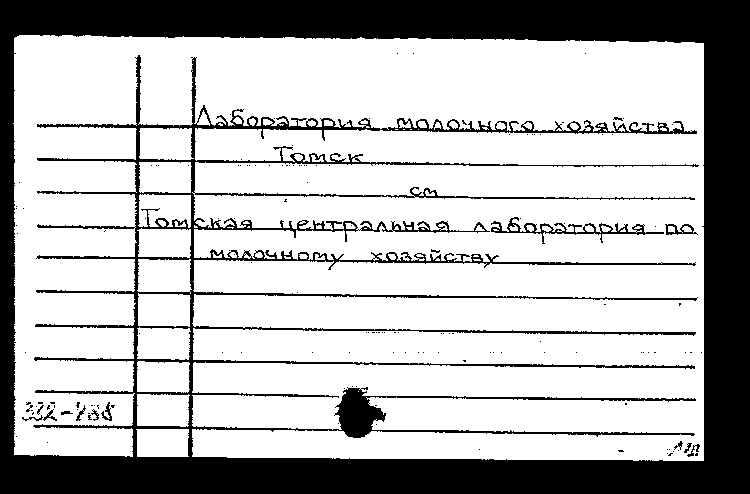 Лаборатория молочного хозяйства
Томск
см
Томская центральная лаборатория по
молочному хозяйству